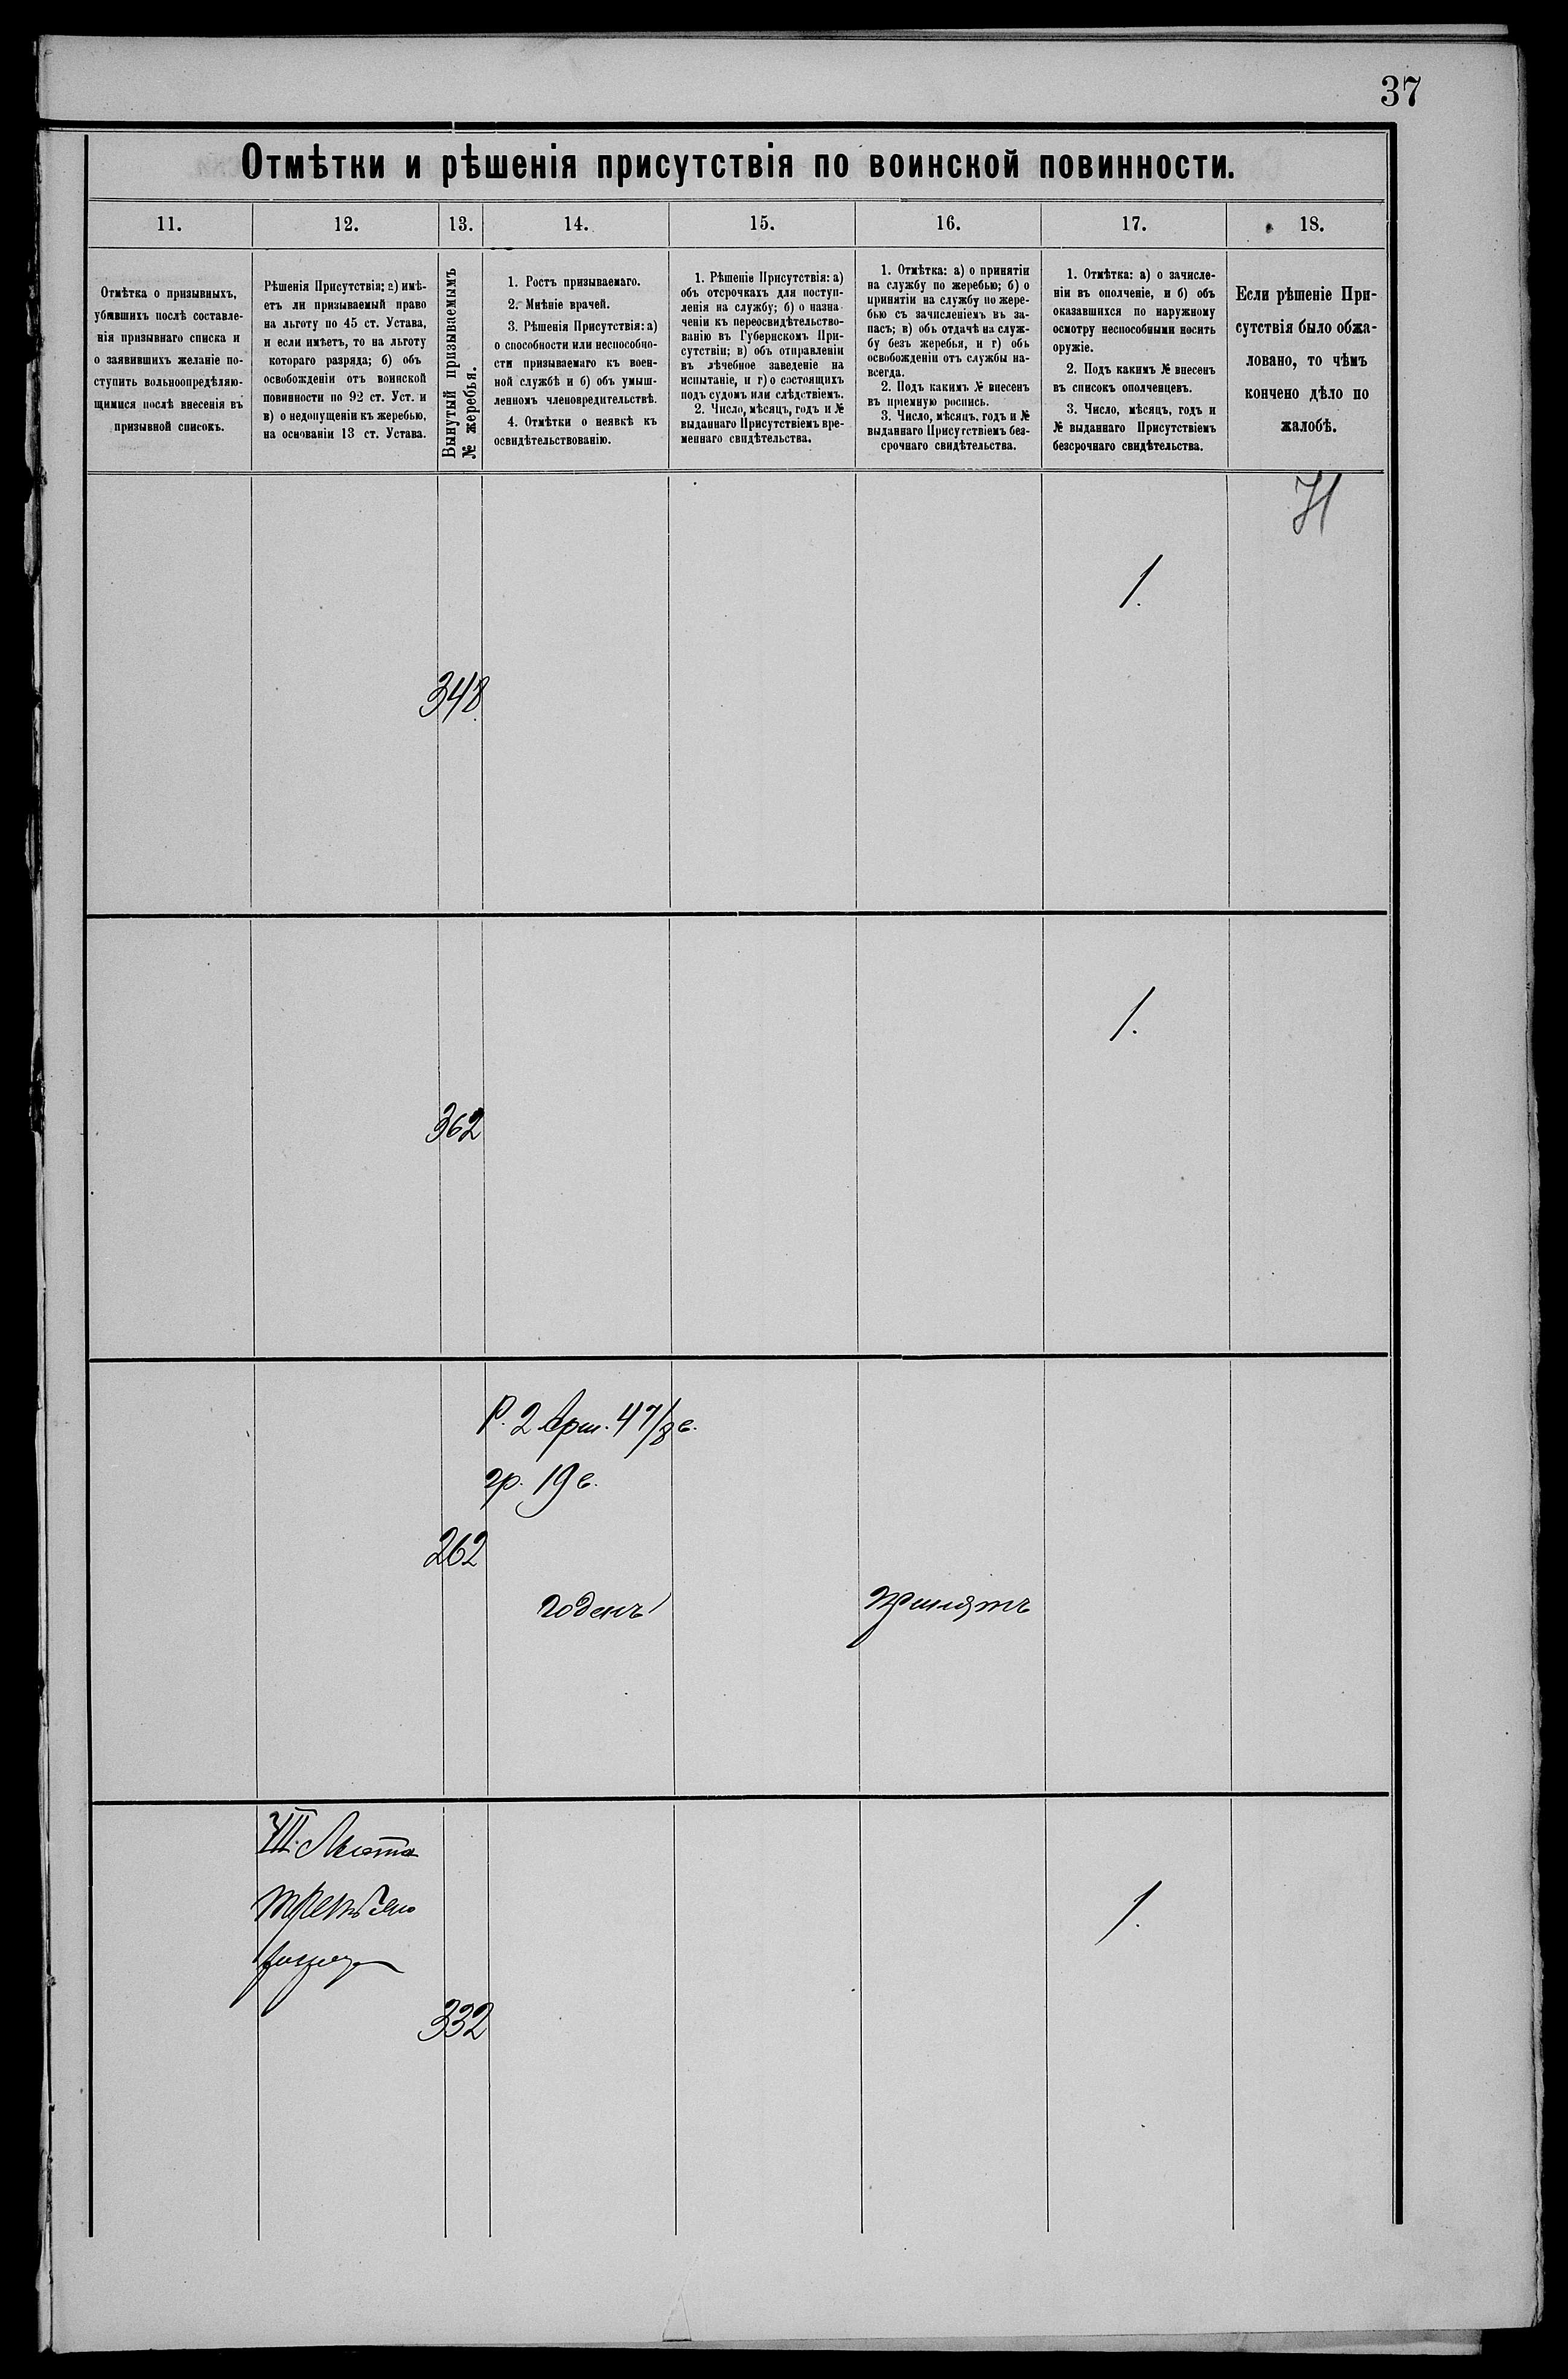 37
Отмѣтки и рѣшенія присутствія по воинской повинности.
11. 12. 13. 14. 15. 16. 17. 18.
Отмѣтка о призывныхъ,
убывшихъ послѣ составле-
нія призывнаго списка и
о заявившихъ желаніе по-
ступить вольноопредѣляю-
щимися послѣ внесенія въ
призывной списокъ.
Рѣшенія Присутствія: а) имѣ-
етъ ли призываемый право
на льготу по 45 ст. Устава,
и если имѣетъ, то на льготу
котораго разряда; б) объ
освобожденіи отъ воинской
повинности по 92 ст. Уст. и
в) о недопущеніи къ жеребью,
на основаніи 13 ст. Устава.
Вынутый призываемымъ
№ жеребья.
1. Ростъ призываемаго.
2. Мнѣніе врачей.
3. Рѣшенія Присутствія: а)
о способности или неспособно-
сти призываемаго къ воен-
ной службѣ и б) объ умыш-
ленномъ членовредительствѣ.
4. Отмѣтки о неявкѣ къ
освидѣтельствованію.
1. Рѣшеніе Присутствія: а)
объ отсрочкахъ для поступ-
ленія на службу; б) о назна-
ченіи къ переосвидѣтельство-
ванію въ Губернскомъ При-
сутствіи; в) объ отправленіи
въ лѣчебное заведеніе на
испытаніе, и г) о состоящихъ
подъ судомъ или слѣдствіемъ.
2. Число, мѣсяцъ, годъ и №
выданнаго Присутствіемъ вре-
меннаго свидѣтельства.
1. Отмѣтка: а) о принятіи
на службу по жеребью; б) о
принятіи на службу по жере-
бью съ зачисленіемъ въ за-
пасъ; в) объ отдачѣ на служ-
бу безъ жеребья, и г) объ
освобожденіи отъ службы на-
всегда.
2. Подъ какимъ № внесенъ
въ пріемную роспись.
3. Число, мѣсяцъ, годъ и №
выданнаго Присутствіемъ без-
срочнаго свидѣтельства.
1. Отмѣтка: а) о зачисле-
ніи въ ополченіе, и б) объ
оказавшихся по наружному
осмотру неспособными носить
оружіе.
2. Подъ какимъ № внесенъ
въ списокъ ополченцевъ.
3. Число, мѣсяцъ, годъ и
№ выданнаго Присутствіемъ
безсрочнаго свидѣтельства.
Если рѣшеніе При-
сутствія было обжа-
ловано, то чѣмъ
кончено дѣло по
жалобѣ.
Н
1.
348.
1.
362
Р. 2 Арш. 4 7/8 в.
гр. 19 в.
262
годенъ
принятъ
III. Льгота
третьяго
разряда
1.
332